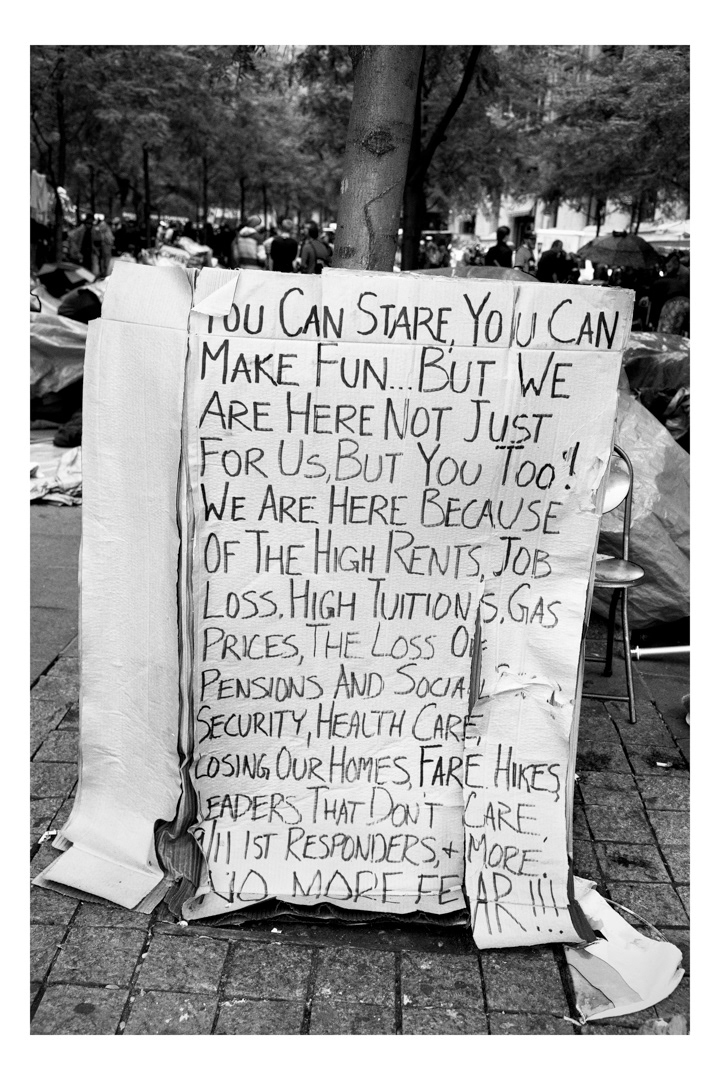 YOU CAN STARE, YOU CAN
MAKE FUN...BUT WE
ARE HERE NOT JUST
FOR US, BUT YOU TOO!
WE ARE HERE BECAUSE
OF THE HIGH RENTS, JOB
LOSS, HIGH TUITIONS, GAS
PRICES, THE LOSS OF
PENSIONS AND SOCIAL
SECURITY, HEALTH CARE,
LOSING OUR HOMES, FARE HIKES,
LEADERS THAT DON'T CARE,
9/11 1ST RESPONDERS, + MORE.
NO MORE FEAR!!!